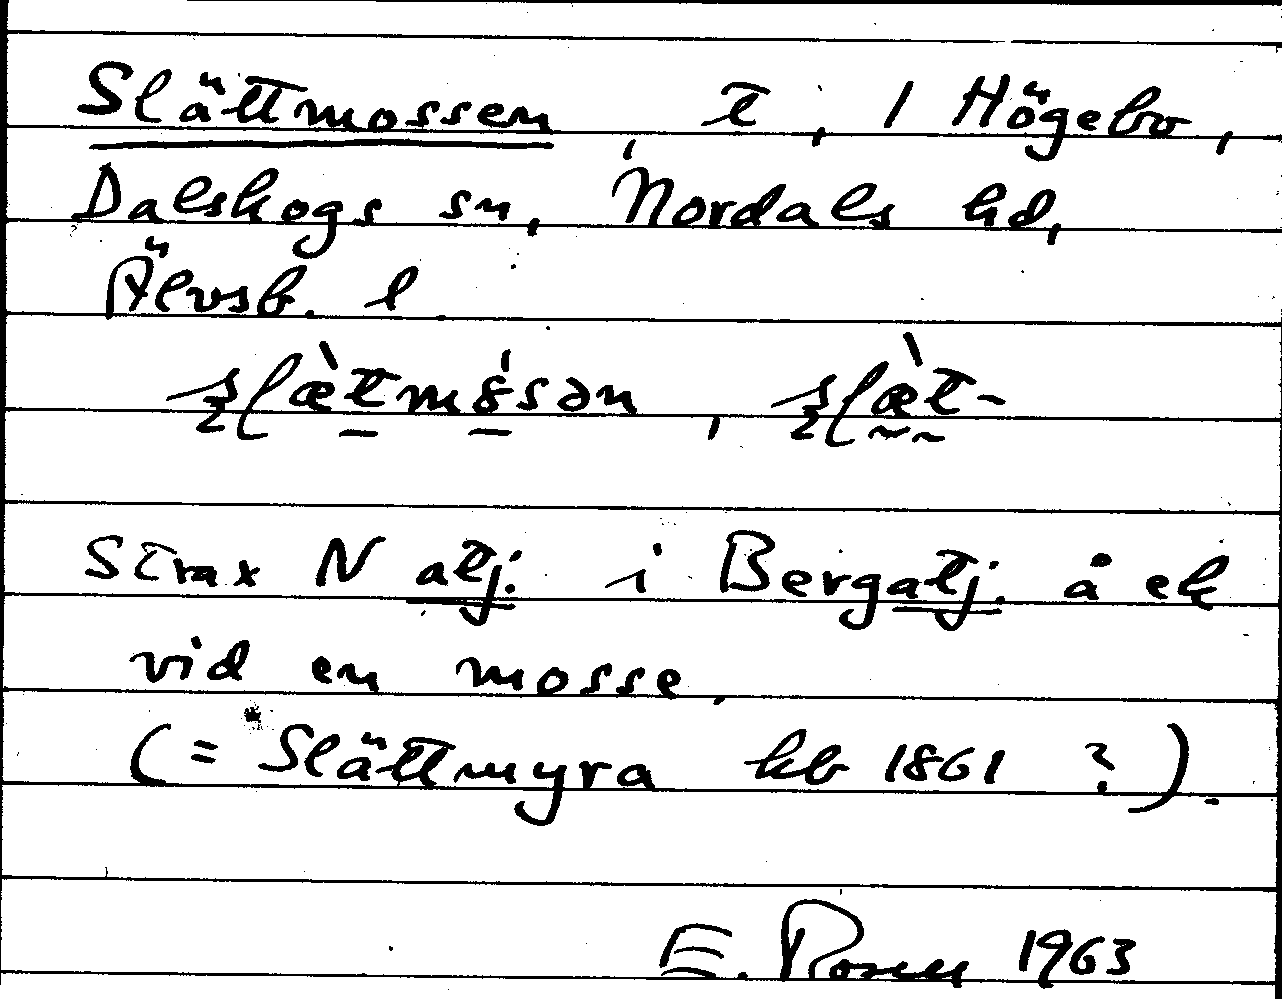 Slättmossen, t, 1 Högebo,
Dalskogs sn, Nordals hd,
Älvsb. l.
slæ̀tmósən, slæ̀t-
Strax N atj. i Bergatj. å ek
vid en mosse.
(= Slättmyra kb 1861 ?).
E. Rosell 1963